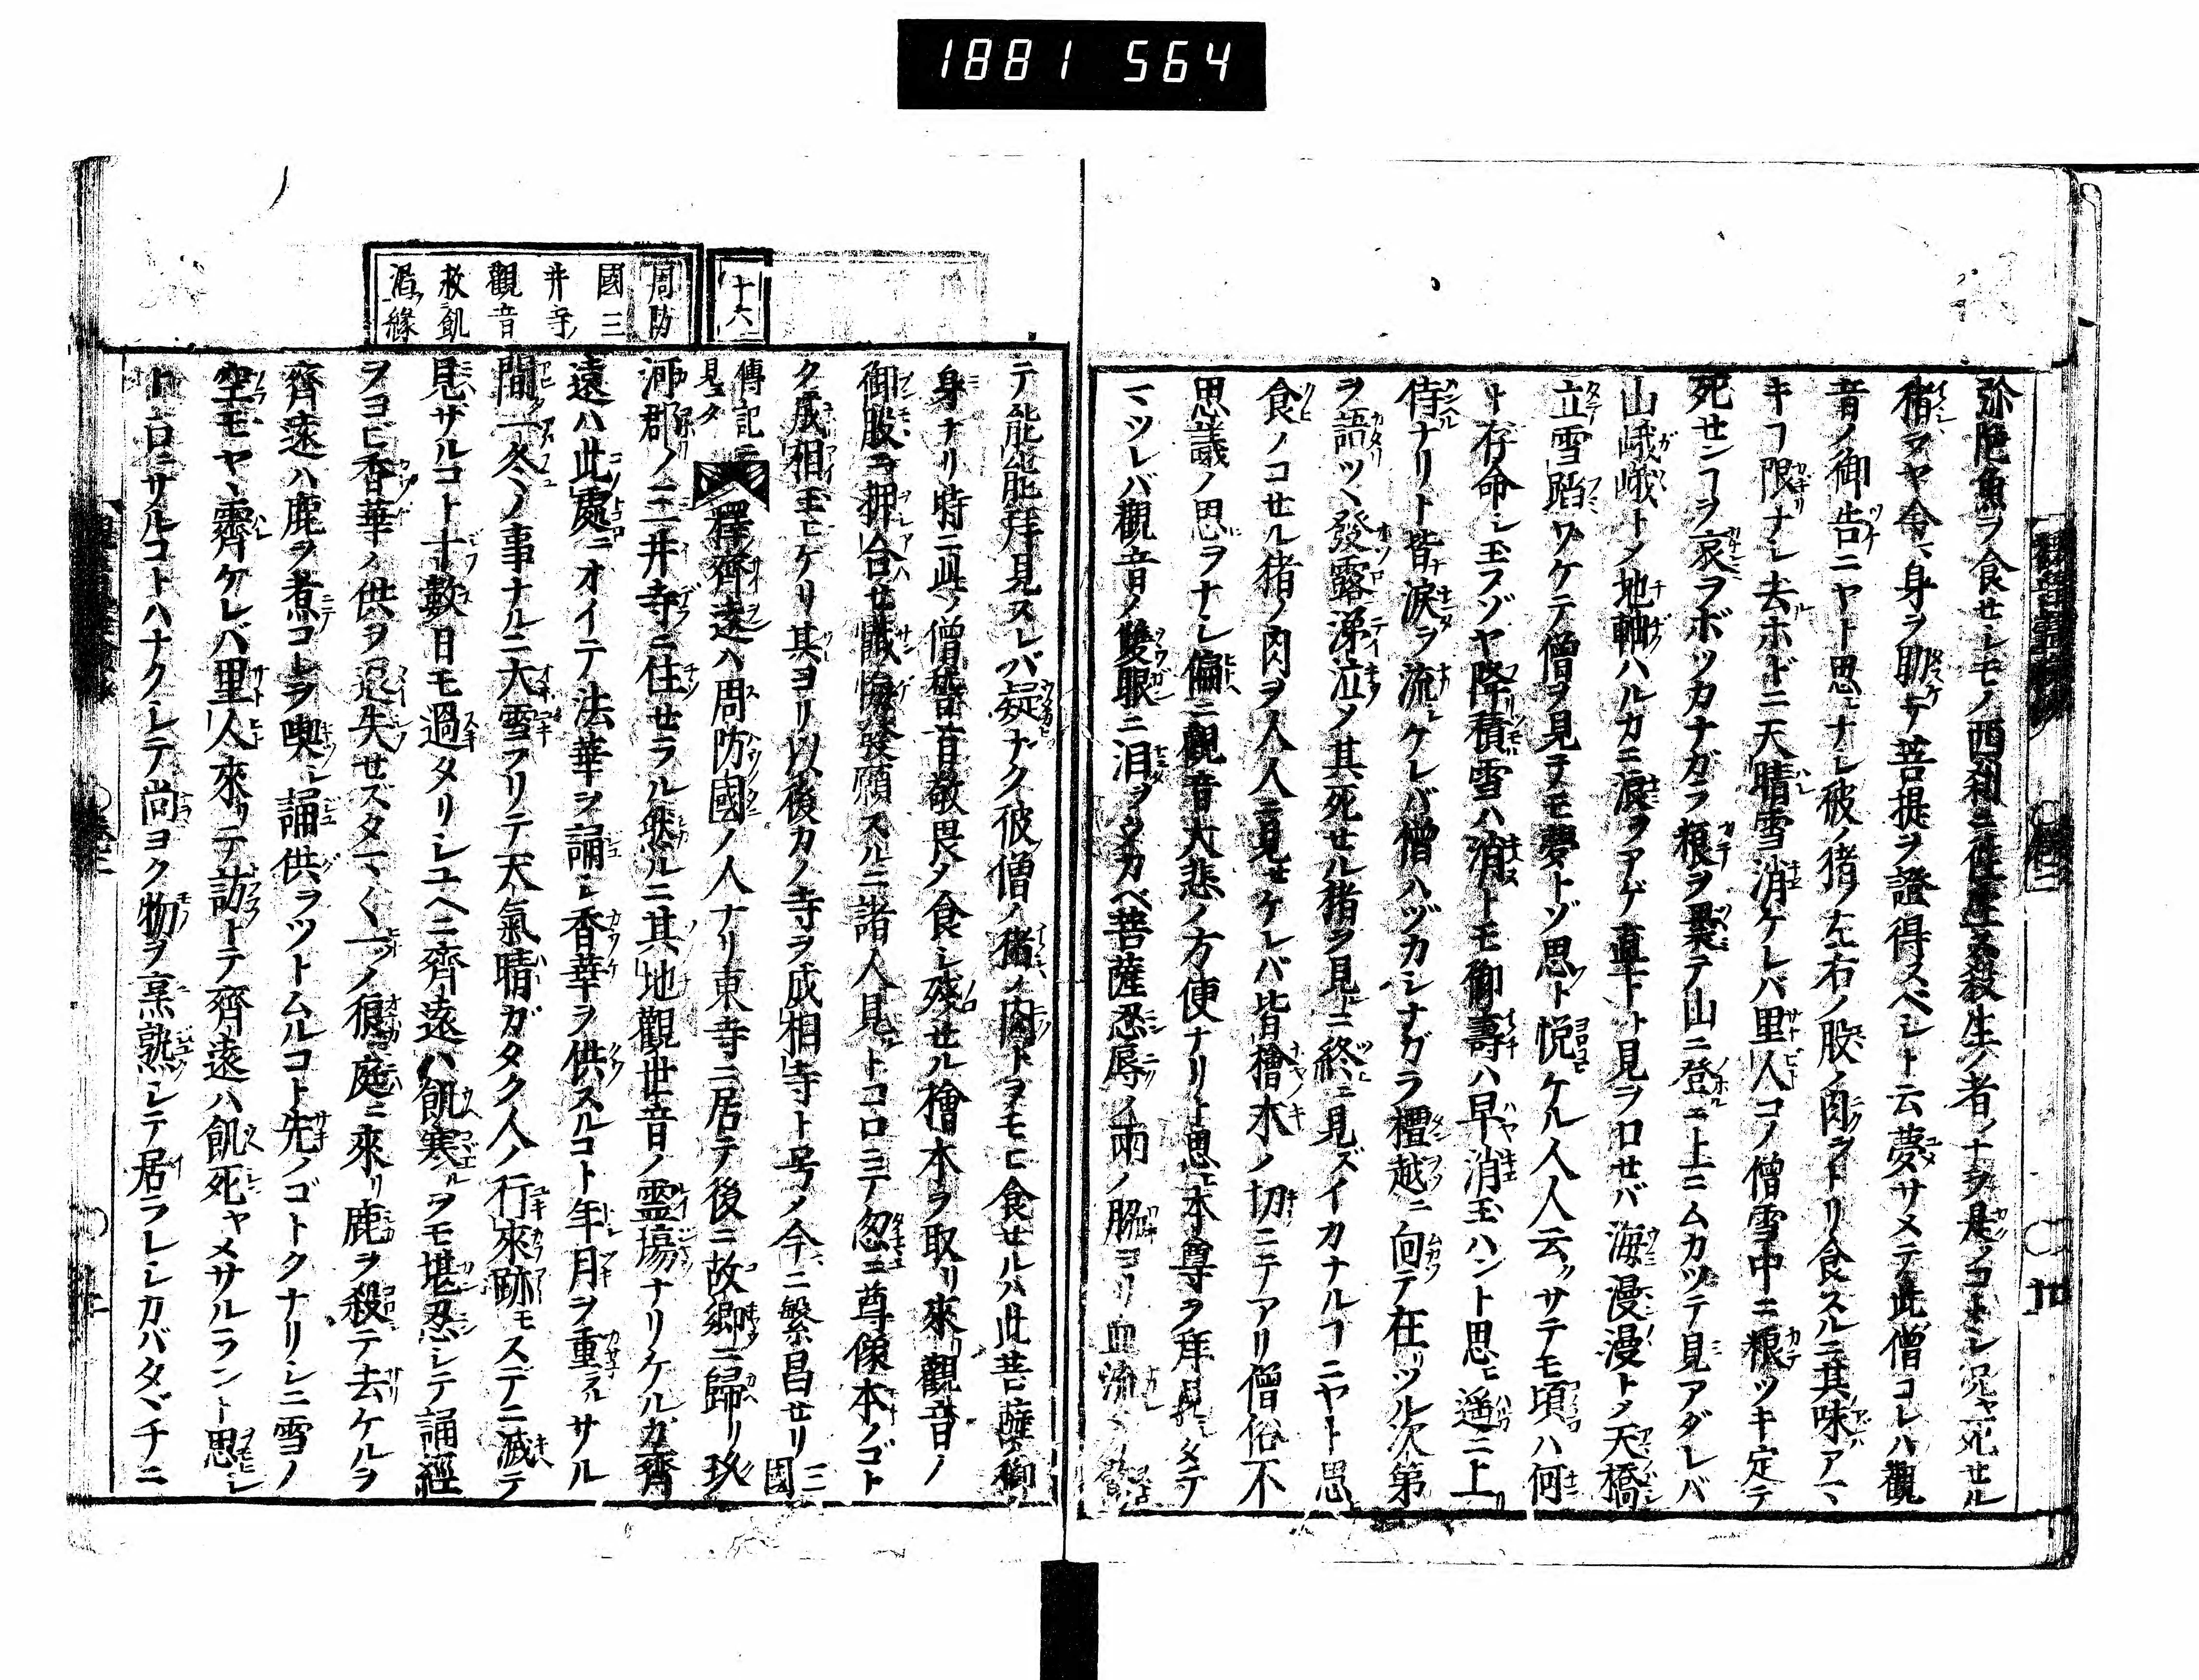 1881 564
弥陀魚ヲ食セシモノ西刹ニ往生ス殺生ノ者ノナヲ是ノコトシ况ヤ死セル
猪ヲヤ今ハ身ヲ助テ菩提ヲ證得スベシト云夢サメテ此僧コレハ觀
音ノ御告ニヤト思ナシ彼ノ猪ノ左右ノ股ノ肉ヲトリ食スルニ其味アマ
キコ限ナシ去ホドニ天晴雪消ケレバ里人コノ僧雪中ニ粮ツキ定テ
死センコヲ哀ヲボツカナガラ粮ヲ裹テ山ニ登ニ上ニムカツテ見アダレバ
山峨峨トメ地軸ハルカニ浪ヲアゲ直下ト見ヲロセバ海漫漫トメ天橋
立雪蹈ワケテ僧ヲ見テモ夢トゾ思ト悦ケル人人云サテモ頃ハ何
ト存命シ玉フゾヤ降積雪ハ消トモ御壽ハ早消玉ハント思ヒ遥ニ上
侍ナリト皆淚ヲ流シケレバ僧ハヅカシナガラ檀越ニ向テ在ツル次第
ヲ語ツヽ發露涕泣メ其死セル猪ヲ見ニ終ニ見ズイカナルコニヤト思
食ノコセル猪ノ肉ヲ人人ニ見セケレバ皆檜木ノ切ニテアリ僧俗不
思議ノ思ヲナシ偏ニ觀音大悲ノ方便ナリト思ヒ本尊ヲ拜見タテ
マツレバ觀音ノ雙眼ニ泪ヲウカベ菩薩忍辱ノ兩ノ脇ヨリ血流
テ能能拜見スレバ疑ナク彼僧ノ猪ノ肉トヲモヒ食セルハ此菩薩ノ御
身ナリ時ニ此ノ僧驚首敬畏メ食シ残セル檜木ヲ取リ來觀音ノ
御股ニ押合セ懺悔發願スルニ諸人見トコロニテ忽ニ尊像本ノゴト
ク成相玉ヒケリ其ヨリ以後カノ寺ヲ成相寺ト号メ今ニ繁昌セリ 三國
傳記ニ見ユタリ
十六
周防國三井寺觀音救飢渴縁
釋齊遠ハ周防國ノ人ナリ東寺ニ居テ後ニ故郷ニ歸リ玖
河郡ノ三井寺ニ住セラル然ルニ其地觀世音ノ霊塲ナリケルガ齊
遠ハ此處ニオイテ法華ヲ誦シ香華ヲ供スルコト年月ヲ重ヌルサル
間一冬ノ事ナルニ大雪フリテ天氣晴ガタク人ノ行來跡モスデニ滅テ
見ザルコト十數日モ過タリシユヘニ齊遠ハ飢寒ルヲモ堪忍シテ誦經
ヲヨヒ香華ノ供ヲ退失セスタマ〱一ノ狼庭ニ來リ鹿ヲ殺テ去ケルヲ
齊遠ハ鹿ヲ煮コレヲ喫シ誦供ヲツトムルコト先ノゴトクナリシニ雪ノ
空モヤヽ霽ケレバ里人來リテ訪トテ齊遠ハ飢死ヤメサルラント思
ト云ニサルコトハナクメシテ尚ヨク物ヲ烹熟シテ居ラレシカバタヾチニ